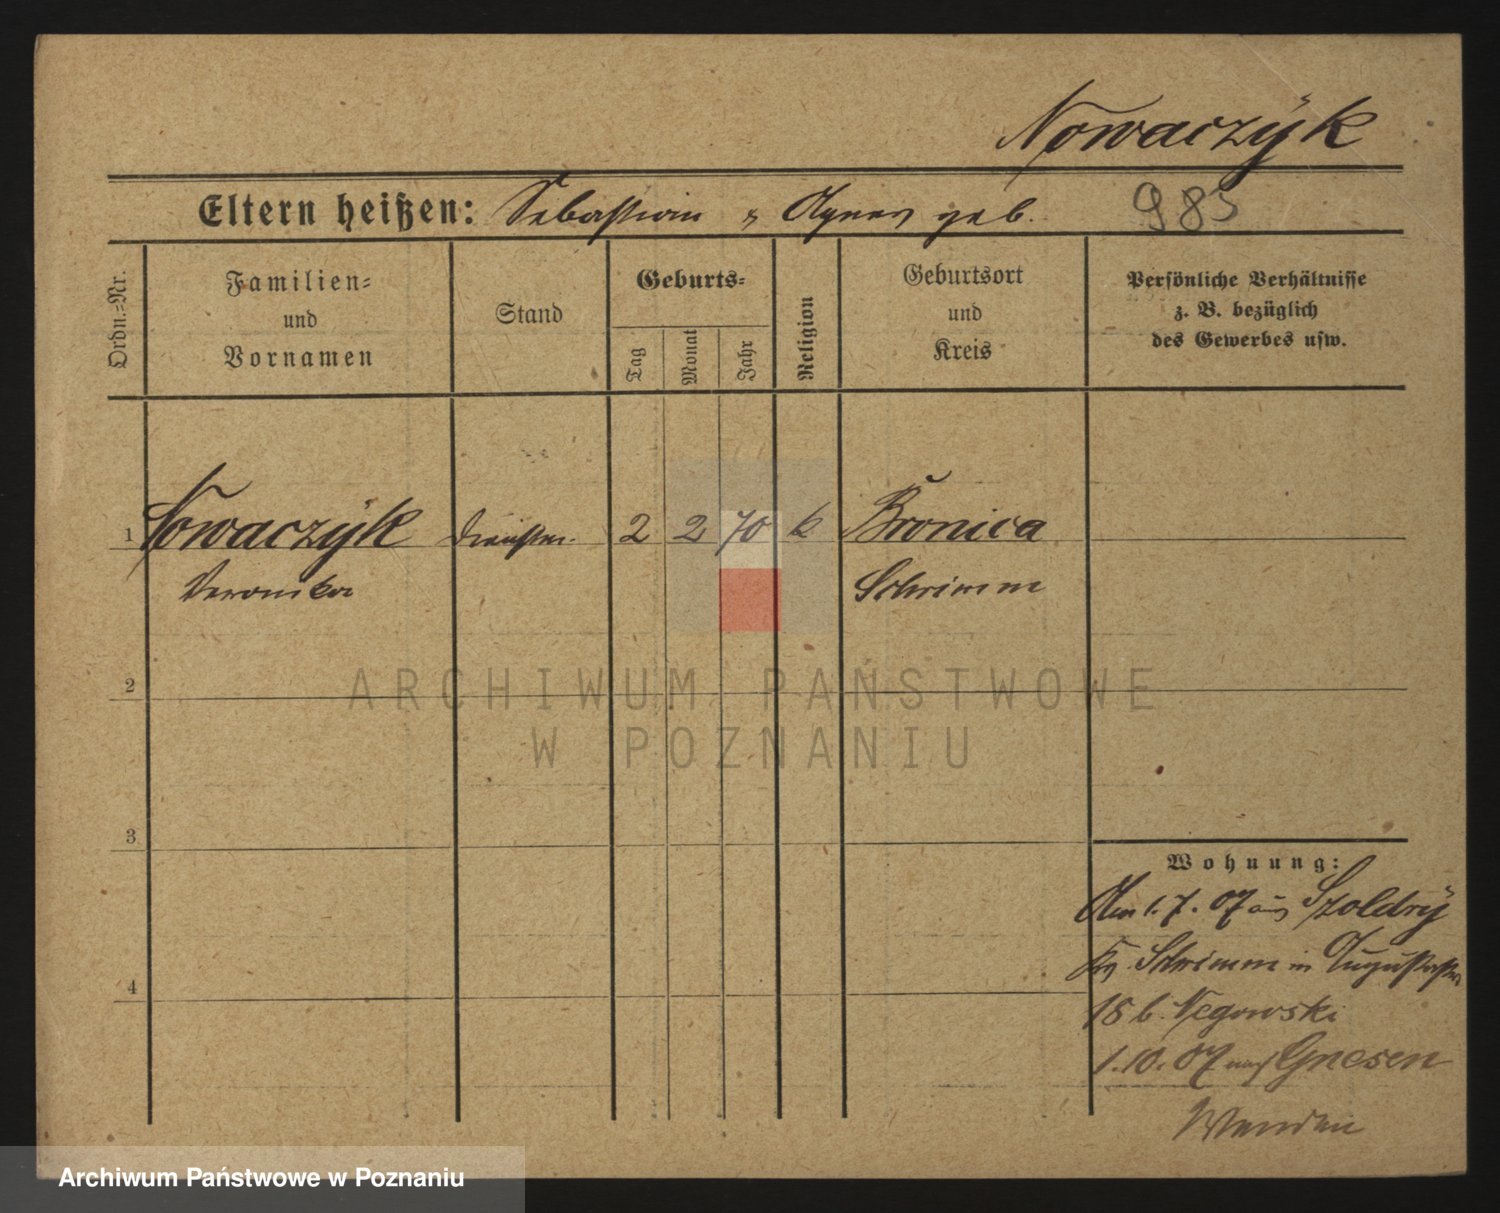 Nowaczÿk
Eltern heißen: Sebastian & Agnes geb. 983
Ordn.=Nr.
Familien=
und
Vornamen
Stand
Geburts=
Tag
Monat
Jahr
Religion
Geburtsort
und
Kreis
Persönliche Verhältnisse
z. B. bezüglich
des Gewerbes usw.
1 Nowaczÿk 2 2 70 k Bronica
Veronika Schrimm
2
ARCHIWUM PAŃSTWOWE
W POZNANIU
3
Wohnung:
Am 1.7.07 aus Szoldrÿ
Kr. Schrimm in Augustastr
4
18 b. Negowski
1.10.07 nach Gnesen
Wenden
Archiwum Państwowe w Poznaniu